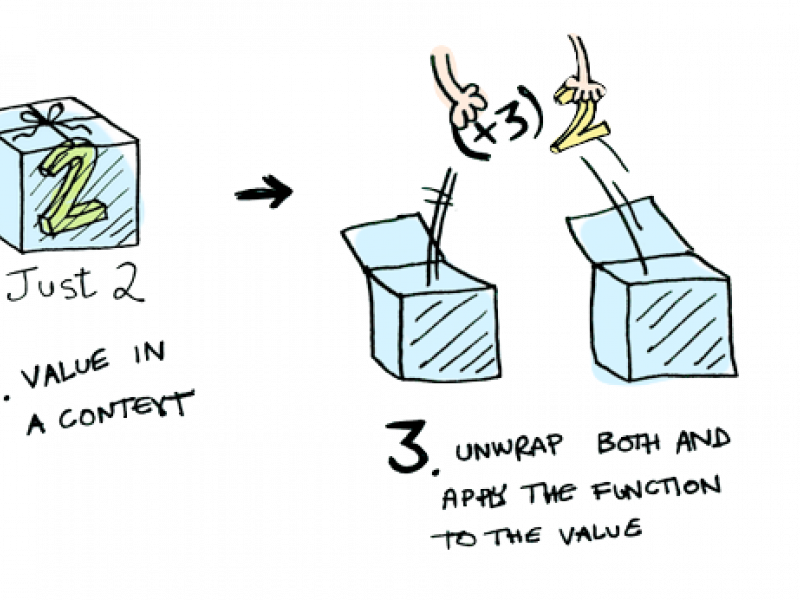 2
Just 2
. VALUE IN
A CONTEXT
(+3) 2
3. UNWRAP BOTH AND
APPLY THE FUNCTION
TO THE VALUE